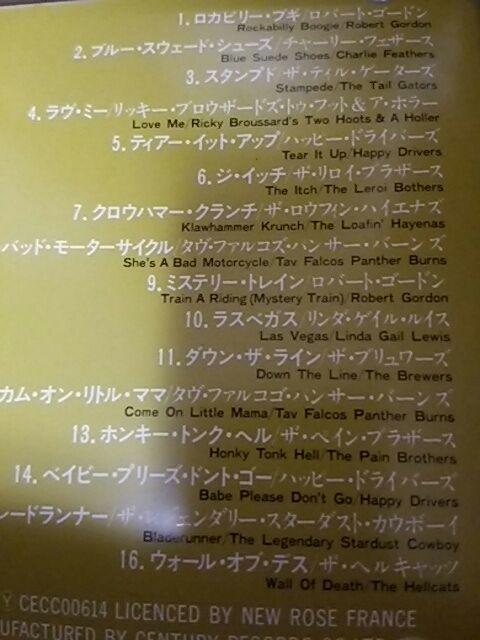 1. ロカビリー・ブギ/ロバート・ゴードン
Rockabilly Boogie/Robert Gordon
2. ブルー・スウェード・シューズ/チャーリー・フェザース
Blue Suede Shoes/Charlie Feathers
3. スタンプド/ザ・テイル・ゲーターズ
Stampede/The Tail Gators
4. ラヴ・ミー/リッキー・ブロウザードズ・トゥ・フット&ア・ホラー
Love Me/Ricky Broussard's Two Hoots & A Holler
5. ティアー・イット・アップ/ハッピー・ドライバーズ
Tear It Up/Happy Drivers
6. ジ・イッチ/ザ・リロイ・ブラザース
The Itch/The Leroi Bothers
7. クロウハマー・クランチ/ザ・ロウフィン・ハイエナズ
Klawhammer Krunch/The Loafin' Hayenas
バッド・モーターサイクル/タヴ・ファルコズ・パンサー・バーンズ
She's A Bad Motorcycle/Tav Falcos Panther Burns
9. ミステリー・トレイン/ロバート・ゴードン
Train A Riding (Mystery Train)/Robert Gordon
10. ラスベガス/リンダ・ゲイル・ルイス
Las Vegas/Linda Gail Lewis
11. ダウン・ザ・ライン/ザ・ブリュワーズ
Down The Line/The Brewers
カム・オン・リトル・ママ/タヴ・ファルコゴ・パンサー・バーンズ
Come On Little Mama/Tav Falcos Panther Burns
13. ホンキー・トンク・ヘル/ザ・ペイン・ブラザース
Honky Tonk Hell/The Pain Brothers
14. ベイビー・プリーズ・ドント・ゴー/ハッピー・ドライバーズ
Babe Please Don't Go/Happy Drivers
レードランナー/ザ・レジェンダリー・スターダスト・カウボーイ
Bladerunner/The Legendary Stardust Cowboy
16. ウォール・オブ・デス/ザ・ヘルキャッツ
Wall Of Death/The Hellcats
Ⓨ CECC00614 LICENCED BY NEW ROSE FRANCE
UFACTURED BY CENTURY RECORDS